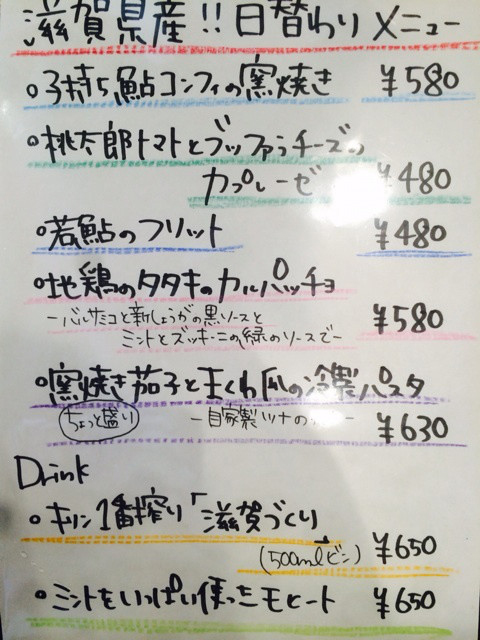 滋賀県産!!日替わりメニュー
○子持ち鮎コンフィの窯焼き ¥580
○桃太郎トマトとブッファラチーズの
カプレーゼ ¥480
○若鮎のフリット ¥480
○地鶏のタタキのカルパッチョ
ーバルサミコと新しょうがの黒ソースと ¥580
ミントとズッキーニの緑のソースでー
○窯焼き茄子とまくわ瓜の冷製パスタ
ちょっと盛り ー自家製ツナの ¥630
Drink
○キリン1番搾り「滋賀づくり
(500mlビン) ¥650
○ミントをいっぱい使ったモヒート ¥650